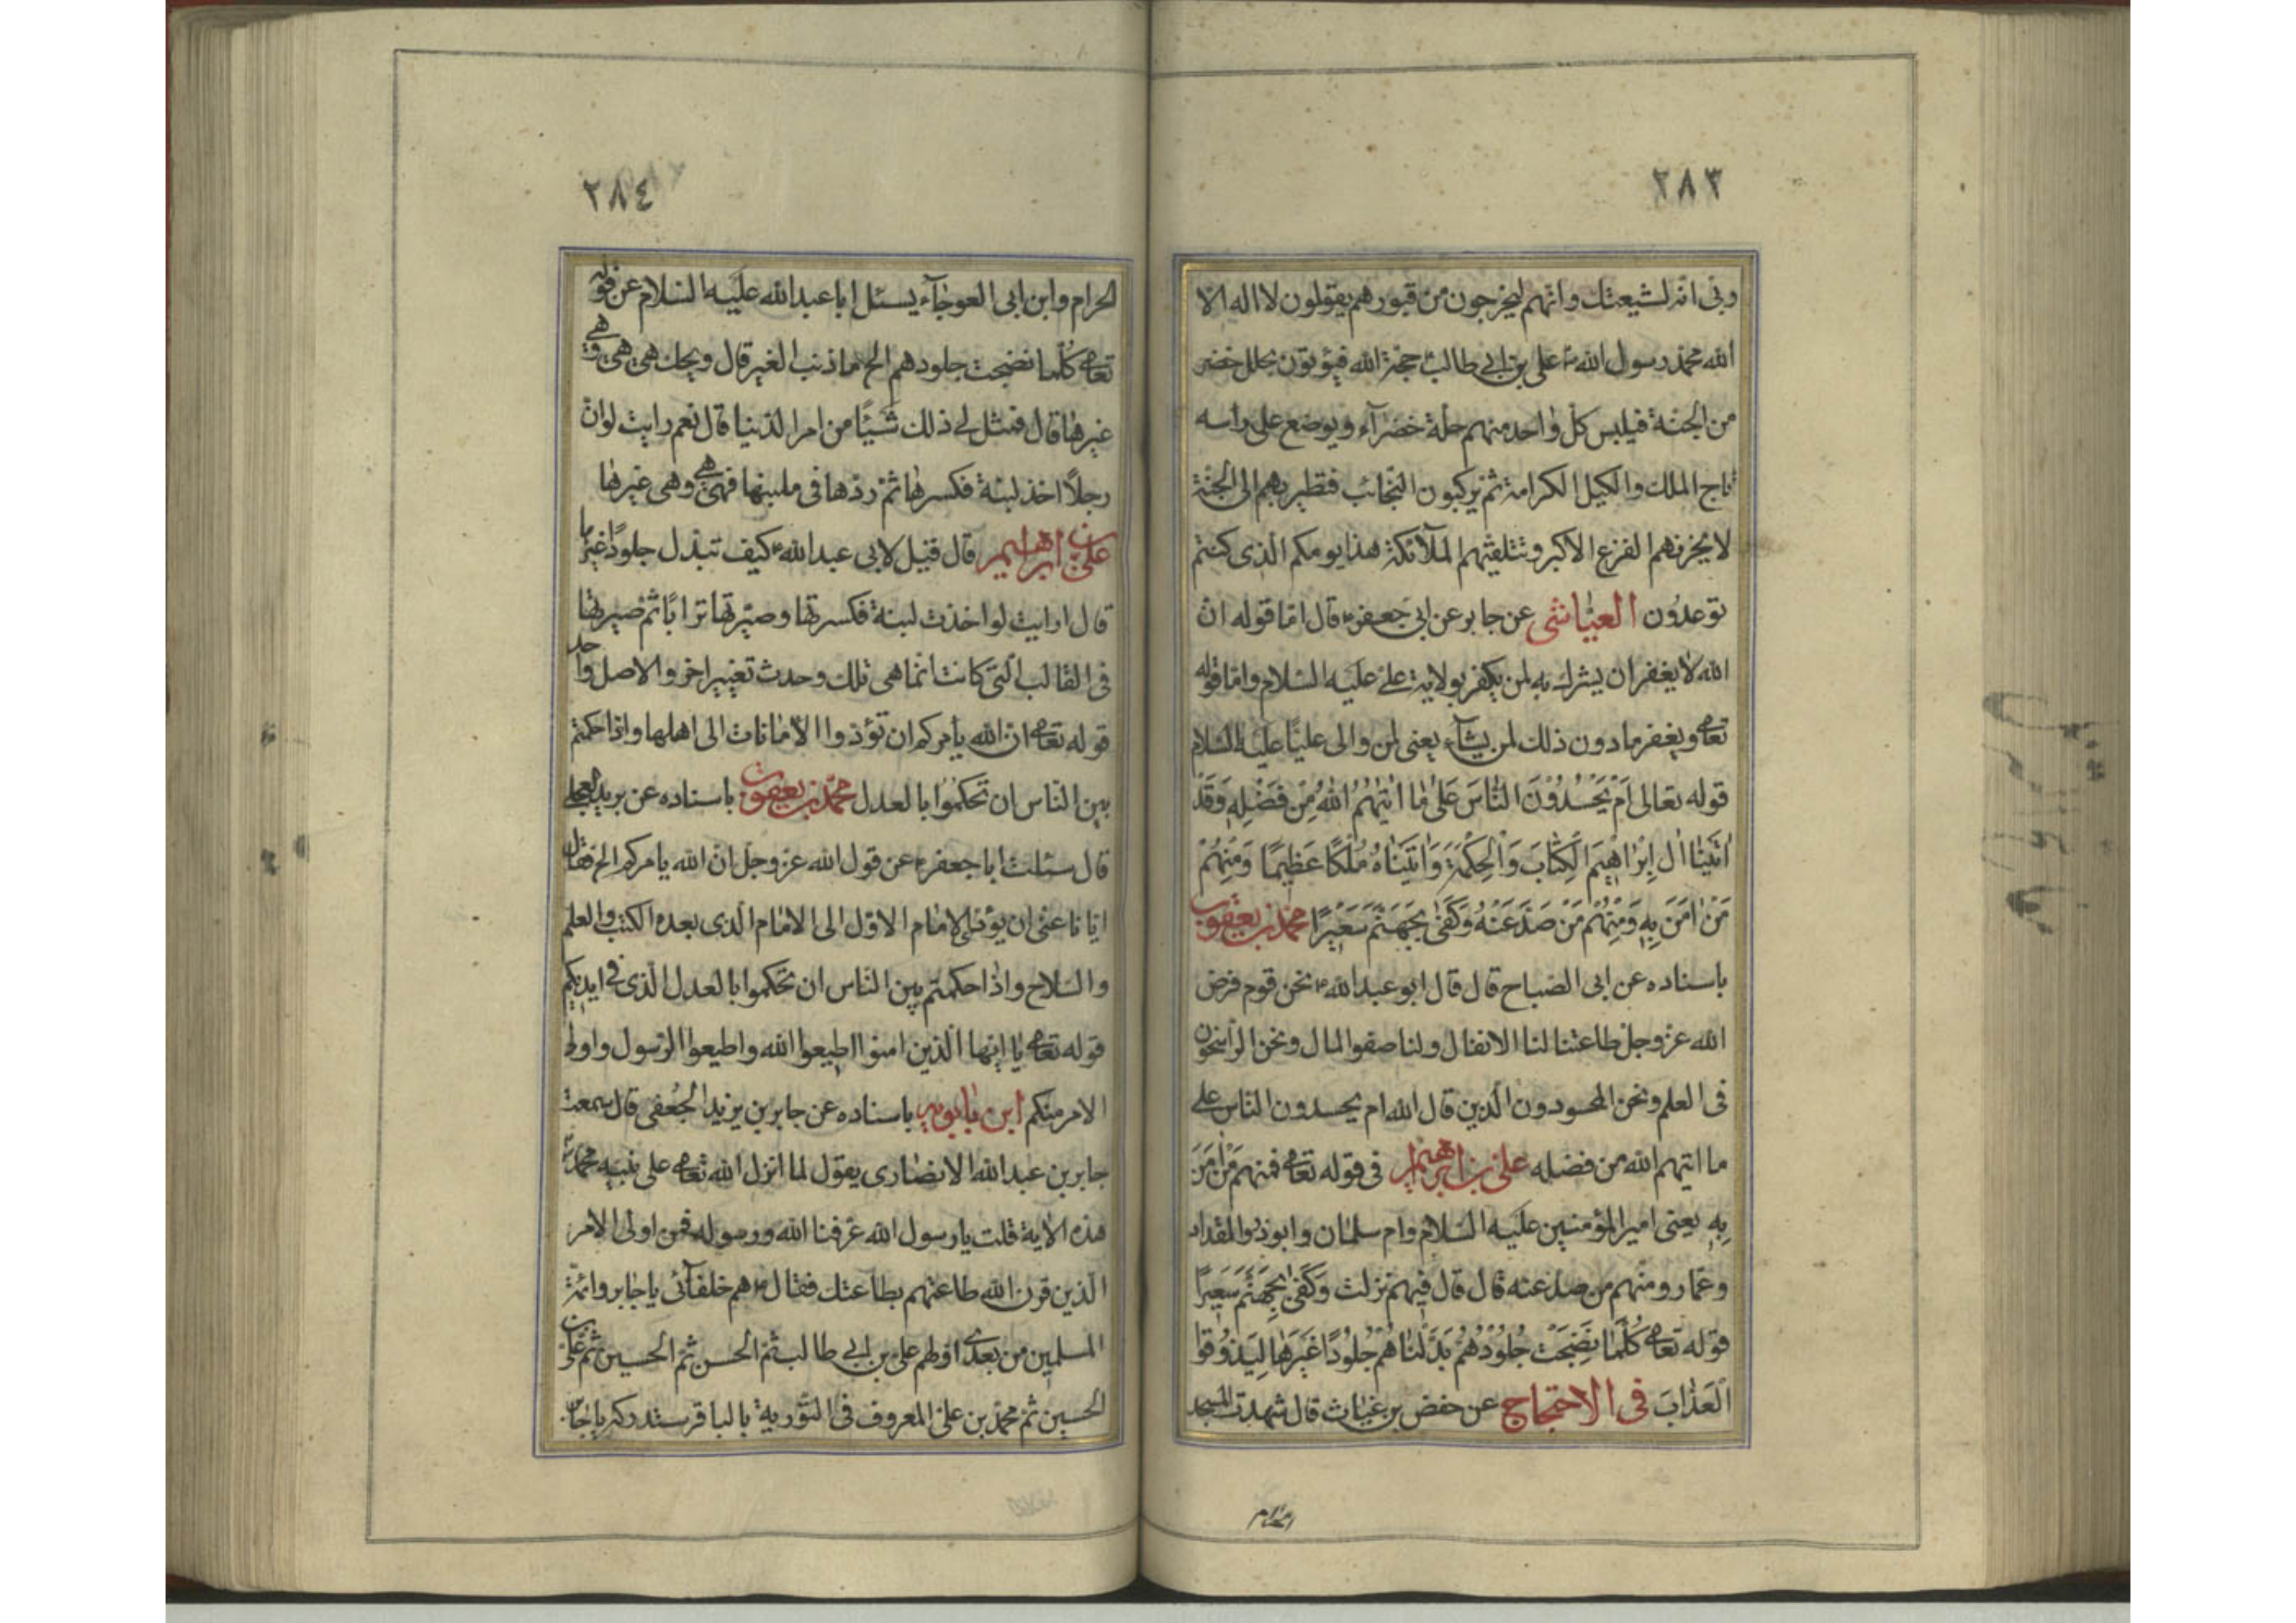 ٢٨٣
وبّى انه لشيعتك وانهم ليخرجون من قبورهم يقولون لا اله الا
الله محمد رسول الله علی بن ابی طالب حجة الله فيؤتون بحلل خضر
من الجنة فيلبس كل واحد منهم حلة خضرآء ويوضع على رأسه
تاج الملك واكليل الكرامة ثم يركبون النجائب فتطير بهم الى الجنة
لا يحزنهم الفزع الاكبر وتتلقيهم الملآئكة هذا يومكم الذى كنتم
توعدون العياشى عن جابر عن ابى جعفر قال اما قوله ان
الله لا يغفر ان يشرك به لمن يكفر بولاية على عليه السلام واما قوله
تعالى ويغفر ما دون ذلك لمن يشآء يعنى لمن والى عليًا عليه السلام
قوله تعالى اَمْ يَحْسُدُونَ النَّاسَ عَلىٰ مٰا اٰتٰيهُمُ اللهُ مِنْ فَضْلِهِ وَقَدْ
اٰتَيْنٰا اٰلَ اِبْرٰاهِيمَ الْكِتٰابَ وَالْحِكْمَةَ وَاٰتَيْنٰاهُ مُلْكًا عَظِيمًا وَمِنْهُمْ
مَنْ اٰمَنَ بِهِ وَمِنْهُمْ مَنْ صَدَّ عَنْهُ وَكَفىٰ بِجَهَنَّمَ سَعِيرًا محمد بن يعقوب
باسناده عن ابى الصباح قال قال ابو عبد الله نحن قوم فرض
الله عز وجل طاعتنا لنا الانفال ولنا صفو المال ونحن الراسخون
فى العلم ونحن المحسودون الذين قال الله ام يحسدون الناس على
ما اتيهم الله من فضله على بن ابرهيم فى قوله تعالى فمنهم مَنْ اٰمَنَ
بِهِ يعنى امير المؤمنين عليه السلام وام سلمان وابو ذر والمقداد
وعمار ومنهم من صد عنه قال قال فيهم نزلت وَكَفىٰ بِجَهَنَّمَ سَعِيرًا
قوله تعالى كُلَّمٰا نَضِجَتْ جُلُودُهُمْ بَدَّلْنٰاهُمْ جُلُودًا غَيْرَهٰا لِيَذُوقُوا
الْعَذٰابَ فى الاحتجاج عن حفص بن غياث قال شهدت المسجد
الحرام
٢٨٤
الحرام وابن ابى العوجآء يسئل ابا عبد الله عليه السلام عن قوله
تعالى كلما نضجت جلودهم الخ ما ذنب الغير قال ويحك هى هى وهى
غيرها قال فمثل لى ذلك شيئًا من امر الدنيا قال نعم رايت لو ان
رجلاً اخذ لبنة فكسرها ثم ردها فى ملبنها فهى هى وهى غيرها
على بن ابراهيم قال قيل لابى عبد الله كيف تبدل جلودًا غيرها
قال ارايت لو اخذت لبنة فكسرتها وصيرتها ترابًا ثم ضيرتها
فى القالب التى كانت انما هى تلك وحدث تغيير اخر والاصل واحد
قوله تعالى ان الله يأمركم ان تؤدوا الامانات الى اهلها واذا حكمتم
بين الناس ان تحكموا بالعدل محمد بن يعقوب باسناده عن بريد العجلى
قال سئلت ابا جعفر عن قول الله عز وجل ان الله يامركم الخ فقال
ايانا عنى ان يؤدى الامام الاول الى الامام الذى بعده الكتب والعلم
والسلاح واذا حكمتم بين الناس ان تحكموا بالعدل الذى فى ايديكم
قوله تعالى يا ايها الذين امنوا اطيعوا الله واطيعوا الرسول واولى
الامر منكم ابن بابويه باسناده عن جابر بن يزيد الجعفى قال سمعت
جابر بن عبد الله الانصارى يقول لما انزل الله تعالى على نبيه محمد
هذه الاية قلت يا رسول الله عرفنا الله ورسوله فمن اولى الامر
الذين قرن الله طاعتهم بطاعتك فقال هم خلفآئى يا جابر وائمة
المسلمين من بعدى اولهم على بن ابى طالب ثم الحسن ثم الحسين ثم على بن
الحسين ثم محمد بن على المعروف فى التورية بالباقر ستدركه يا جابر